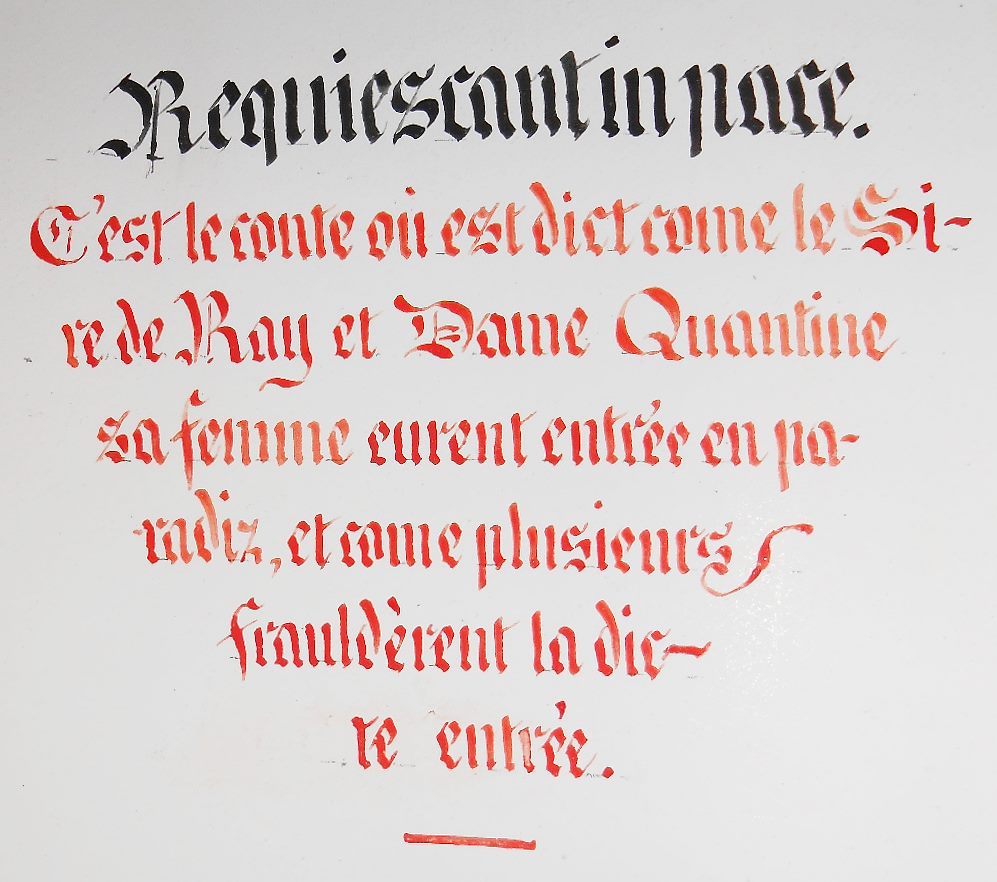 Requiescant in pace.
C'est le conte où est dict come le Si-
re de Ray et Dame Quantine
sa femme eurent entrée en pa-
radiz, et come plusieurs
frauldèrent la dic-
te entrée.